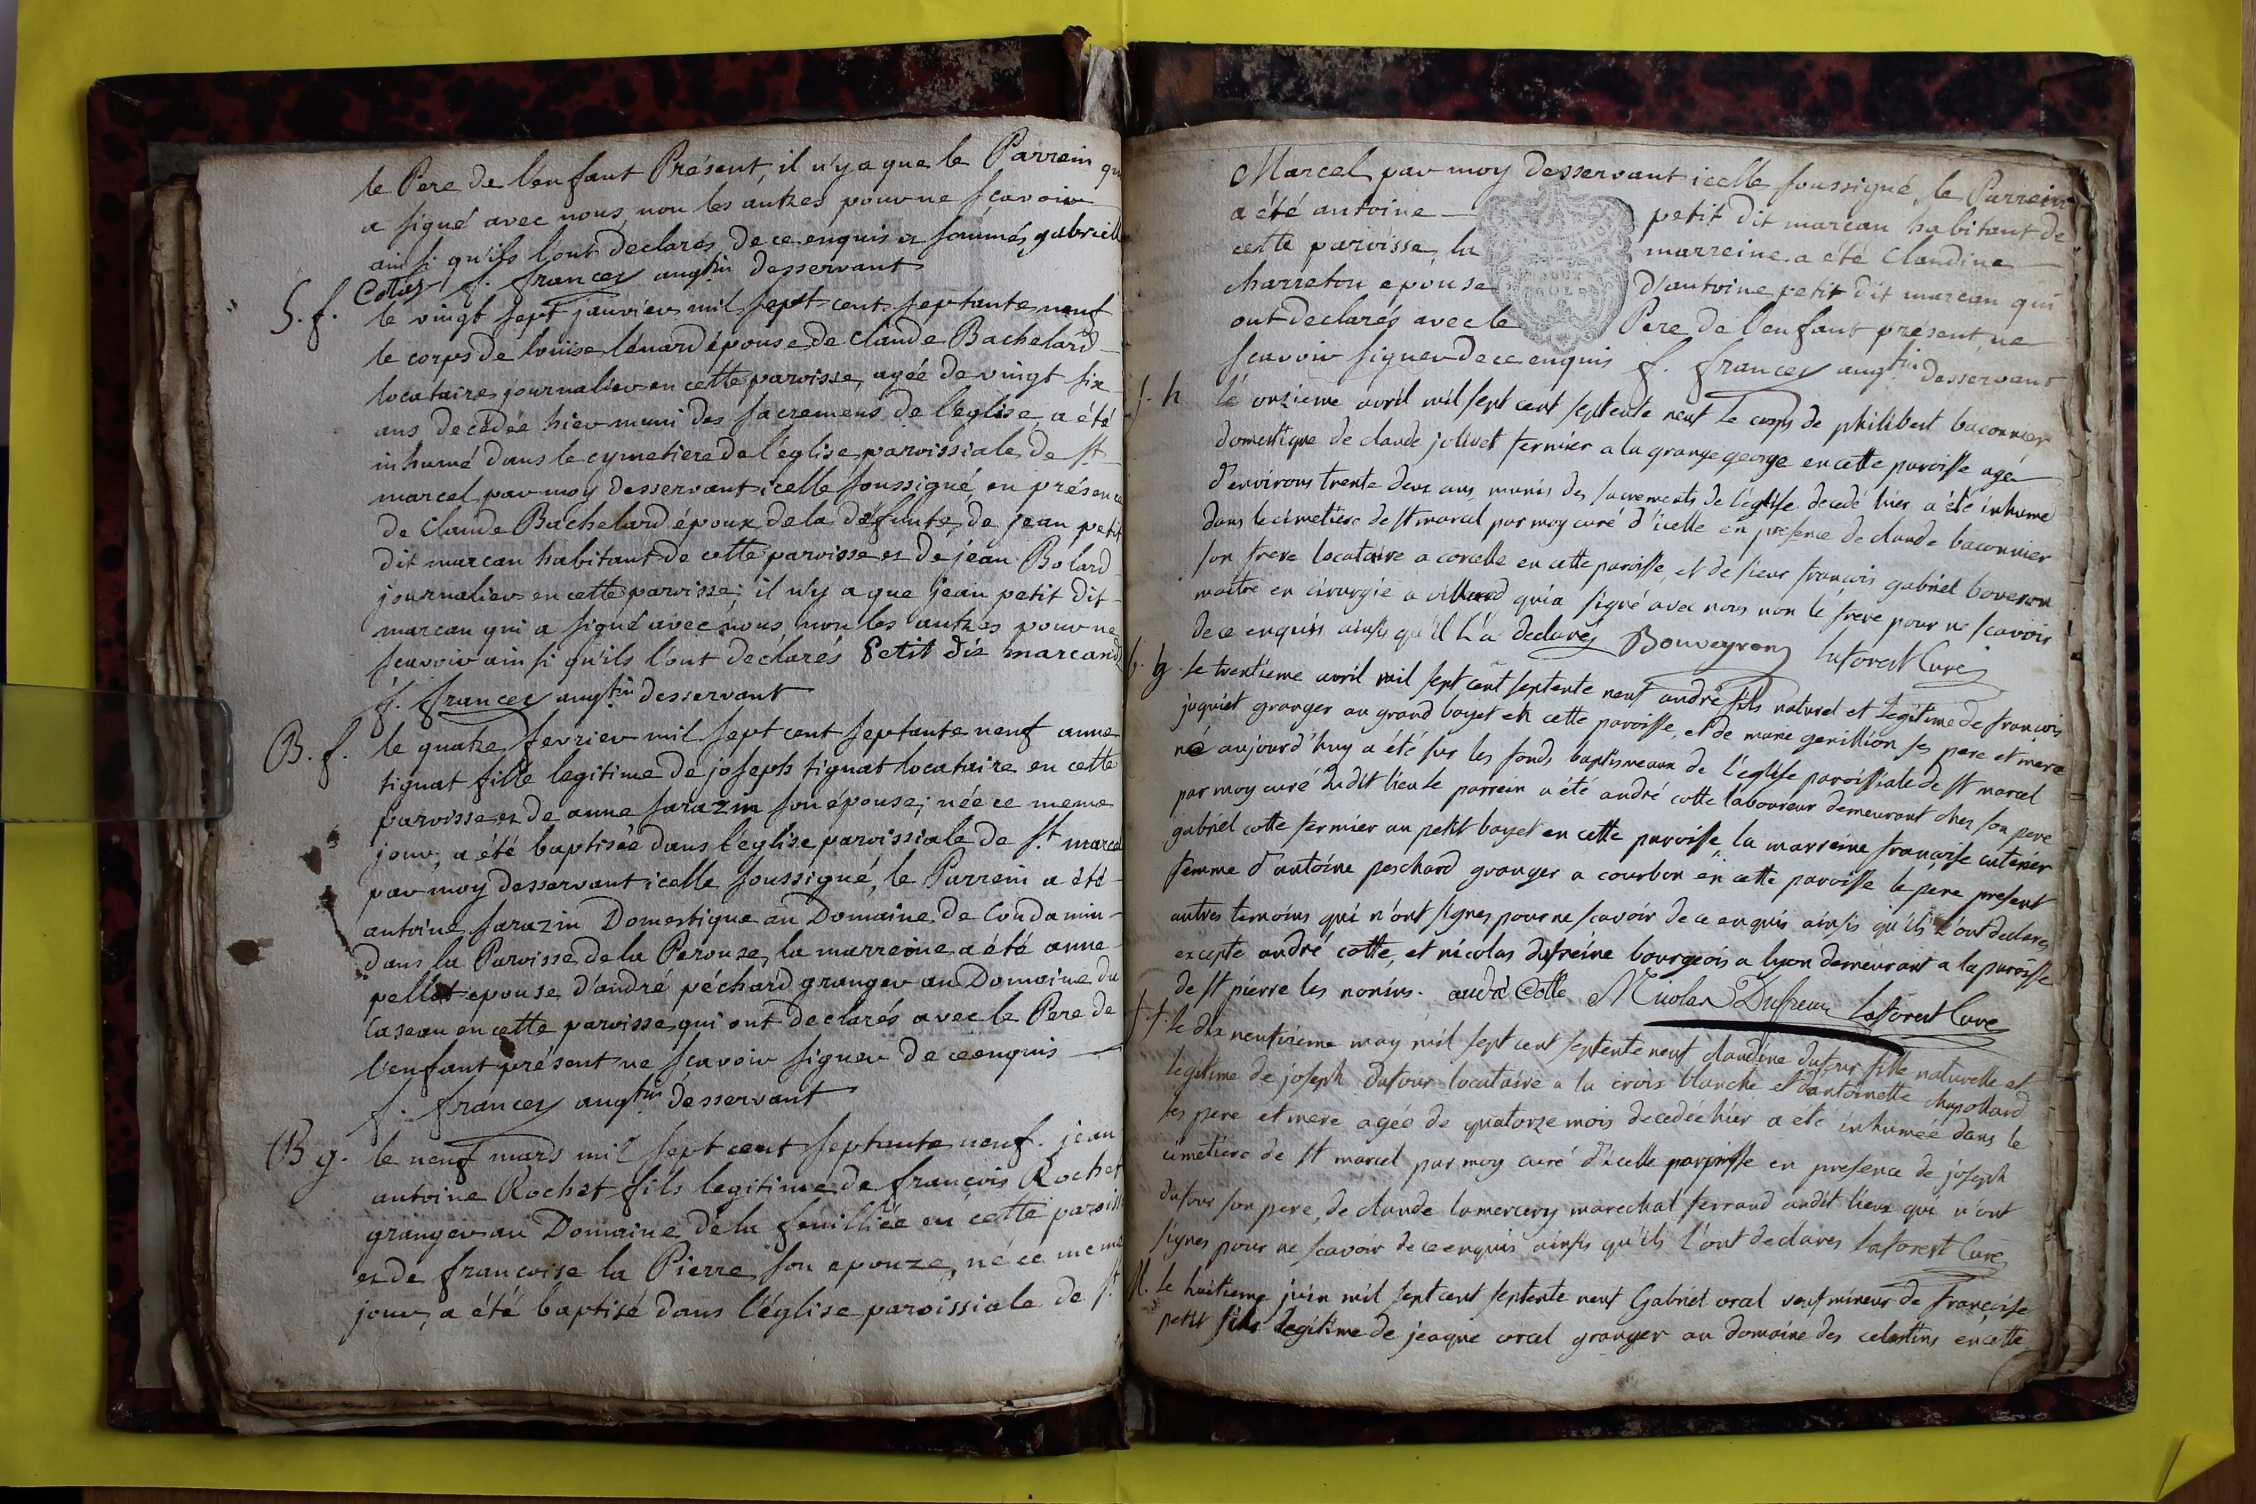 le Pere de l'enfant Présent, il n'y a que le Parrein qu
a signé avec nous, non les autres pour ne sçavoir
ainsi qu'ils l'ont declarés de ce enquis et sommés, gabriell
Cottay f. francey augtin desservant
S. f.
le vingt sept janvier mil sept cent septante neuf
le corps de louise lénard épouse de Claude Bachelard
locataire journalier en cette paroisse, agée de vingt six
ans decedée hier muni des sacremens de l'église, a été
inhumé dans le cymetiere de l'église paroissiale de st
marcel par moy desservant icelle soussigné en présence
de Claude Bachelard époux de la défunte, de jean petit
dit marcan habitant de cette paroisse et de jean Bolard
journalier en cette paroisse; il n'y a que jean petit dit
marcan qui a signé avec nous, non les autres pour ne
sçavoir ainsi qu'ils l'ont déclarés Petit dit marcand
f. francey augtin desservant
B. f.
le quatre fevrier mil sept cent septante neuf anne
tignat fille legitime de joseph tignat locataire en cette
paroisse et de anne sarazin son épouse; née ce meme
jour, a été baptisée dans l'église paroissiale de st marcel
par moy desservant icelle soussigné, le Parrein a été
antoine sarazin Domestique au Domaine de Condamin
dans la Paroisse de la Perouse, la marreine a été anne
pellot epouse d'andré péchard granger au Domaine du
Caseau en cette paroisse, qui ont declarés avec le Pere de
l'enfant présent ne sçavoir signer de ce enquis
f. francey augtin desservant
B g.
le neuf mars mil sept cent septante neuf. jean
antoine Rochet fils legitime de françois Rochet
granger au Domaine de la feuilliée en cette paroisse
et de francoise la Pierre son epouze, né ce meme
jour, a été baptisé dans l'église paroissiale de st
Marcel par moy desservant icelle soussigné, le Parrein
a été antoine petit dit marcan habitant de
cette paroisse, la marreine a été Claudine
charreton epouse d'antoine petit dit marcan qui
ont declarés avec le Pere de l'enfant present, ne
sçavoir signer de ce enquis f. francey augtin desservant
S. h
le onzieme avril mil sept cent septente neuf le corps de philibert baconnier
domestique de claude jolivet fermier a la grange george en cette paroisse agé
d'environs trente deux ans, munis des sacrements de l'église decedé hier a été inhumé
dans le cimetiere de st marcel par moy curé d'icelle en presence de claude baconnier
son frere locataire a corcelle en cette paroisse, et de sieur françois gabriel boveron
maitre en cirurgie a villard qui a signé avec nous non le frere pour ne scavoir
de ce enquis ainsi qu'il l'a declarés Bouveyron laforest Curé
b. g.
le trentieme avril mil sept cent septente neuf andré fils naturel et legitime de françois
joquiet granger au grand boyet en cette paroisse, et de marie genillion ses pere et mere
né aujourd'huy a été sur les fonds baptismeaux de l'église paroissiale de st marcel
par moy curé dudit lieu le parrein a été andré cotte laboureur demeurant ches son pere
gabriel cotte fermier au petit boyet en cette paroisse la marreine françoise cuterier
femme d'antoine peschard granger a courbon en cette paroisse le pere present
autres temoins qui n'ont signes pour ne scavoir de ce enquis ainsis qu'ils l'ont declares
excepte andré cotte, et nicolas dufreine bourgeois a lyon demeurant a la paroisse
de st pierre les nonins. andré Cotte Nicolas Dufreine laforest Curé
S. f.
le dix neufvieme may mil sept cent septente neuf claudine dufour fille naturelle et
legitime de joseph dufour locataire a la crois blanche et d'antoinette chapollard
ses pere et mere agée de quatorze mois decedée hier a eté inhumée dans le
cimetiere de st marcel par moy curé d'icelle paroisse en presence de joseph
dufour son pere, de claude lamercery marechal ferrand audit lieux qui n'ont
signes pour ne scavoir de ce enquis ainsis qu'ils l'ont declares laforest Curé
M.
le huitieme juin mil sept cent septente neuf Gabriel oral veuf mineur de françoise
petit fils legitime de jeaque oral granger au domaine des celestins en cette